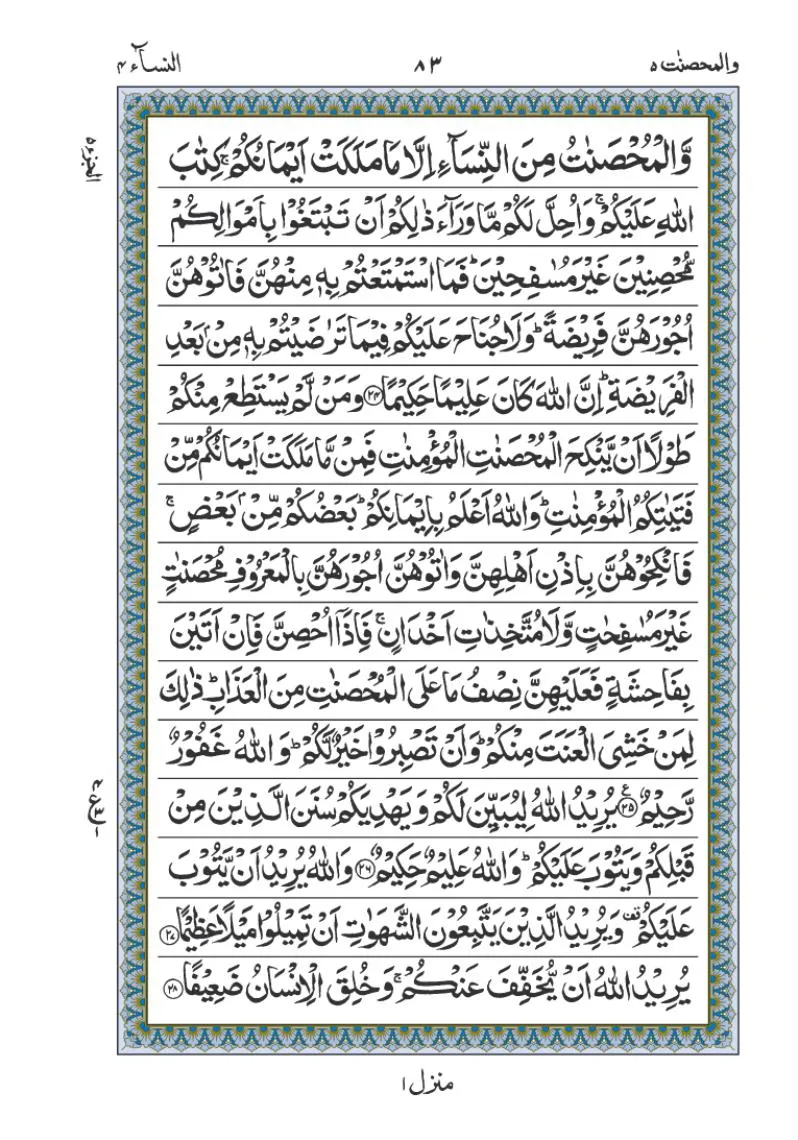 والمحصنٰت ۵
۸۳
النسآء ۴
الجزء ۵
وَّالۡمُحۡصَنٰتُ مِنَ النِّسَآءِ اِلَّا مَا مَلَكَتۡ اَيۡمَانُكُمۡ‌ۚ كِتٰبَ
اللّٰهِ عَلَيۡكُمۡ‌ۚ وَاُحِلَّ لَكُمۡ مَّا وَرَآءَ ذٰلِكُمۡ اَنۡ تَبۡتَغُوۡا بِاَمۡوَالِكُمۡ
مُّحۡصِنِيۡنَ غَيۡرَ مُسٰفِحِيۡنَ‌ؕ فَمَا اسۡتَمۡتَعۡتُمۡ بِهٖ مِنۡهُنَّ فَاٰتُوۡهُنَّ
اُجُوۡرَهُنَّ فَرِيۡضَةً‌ؕ وَلَا جُنَاحَ عَلَيۡكُمۡ فِيۡمَا تَرٰضَيۡتُمۡ بِهٖ مِنۡۢ بَعۡدِ
الۡفَرِيۡضَةِ‌ؕ اِنَّ اللّٰهَ كَانَ عَلِيۡمًا حَكِيۡمًا ۲۴ وَمَنۡ لَّمۡ يَسۡتَطِعۡ مِنۡكُمۡ
طَوۡلًا اَنۡ يَّنۡكِحَ الۡمُحۡصَنٰتِ الۡمُؤۡمِنٰتِ فَمِنۡ مَّا مَلَكَتۡ اَيۡمَانُكُمۡ مِّنۡ
فَتَيٰتِكُمُ الۡمُؤۡمِنٰتِ‌ؕ وَاللّٰهُ اَعۡلَمُ بِاِيۡمَانِكُمۡ‌ؕ بَعۡضُكُمۡ مِّنۡۢ بَعۡضٍ‌ۚ
فَانْكِحُوۡهُنَّ بِاِذۡنِ اَهۡلِهِنَّ وَاٰتُوۡهُنَّ اُجُوۡرَهُنَّ بِالۡمَعۡرُوۡفِ مُحۡصَنٰتٍ
غَيۡرَ مُسٰفِحٰتٍ وَّلَا مُتَّخِذٰتِ اَخۡدَانٍ‌ۚ فَاِذَاۤ اُحۡصِنَّ فَاِنۡ اَتَيۡنَ
بِفَاحِشَةٍ فَعَلَيۡهِنَّ نِصۡفُ مَا عَلَى الۡمُحۡصَنٰتِ مِنَ الۡعَذَابِ‌ؕ ذٰلِكَ
لِمَنۡ خَشِىَ الۡعَنَتَ مِنۡكُمۡ‌ؕ وَاَنۡ تَصۡبِرُوۡا خَيۡرٌ لَّكُمۡ‌ؕ وَاللّٰهُ غَفُوۡرٌ
رَّحِيۡمٌ ۲۵ ع يُرِيۡدُ اللّٰهُ لِيُبَيِّنَ لَكُمۡ وَيَهۡدِيَكُمۡ سُنَنَ الَّذِيۡنَ مِنۡ
قَبۡلِكُمۡ وَيَتُوۡبَ عَلَيۡكُمۡ‌ؕ وَاللّٰهُ عَلِيۡمٌ حَكِيۡمٌ ۲۶ وَاللّٰهُ يُرِيۡدُ اَنۡ يَّتُوۡبَ
عَلَيۡكُمۡ وَيُرِيۡدُ الَّذِيۡنَ يَتَّبِعُوۡنَ الشَّهَوٰتِ اَنۡ تَمِيۡلُوۡا مَيۡلًا عَظِيۡمًا ۲۷
يُرِيۡدُ اللّٰهُ اَنۡ يُّخَفِّفَ عَنۡكُمۡ‌ۚ وَخُلِقَ الۡاِنۡسَانُ ضَعِيۡفًا ۲۸
منزل ۱